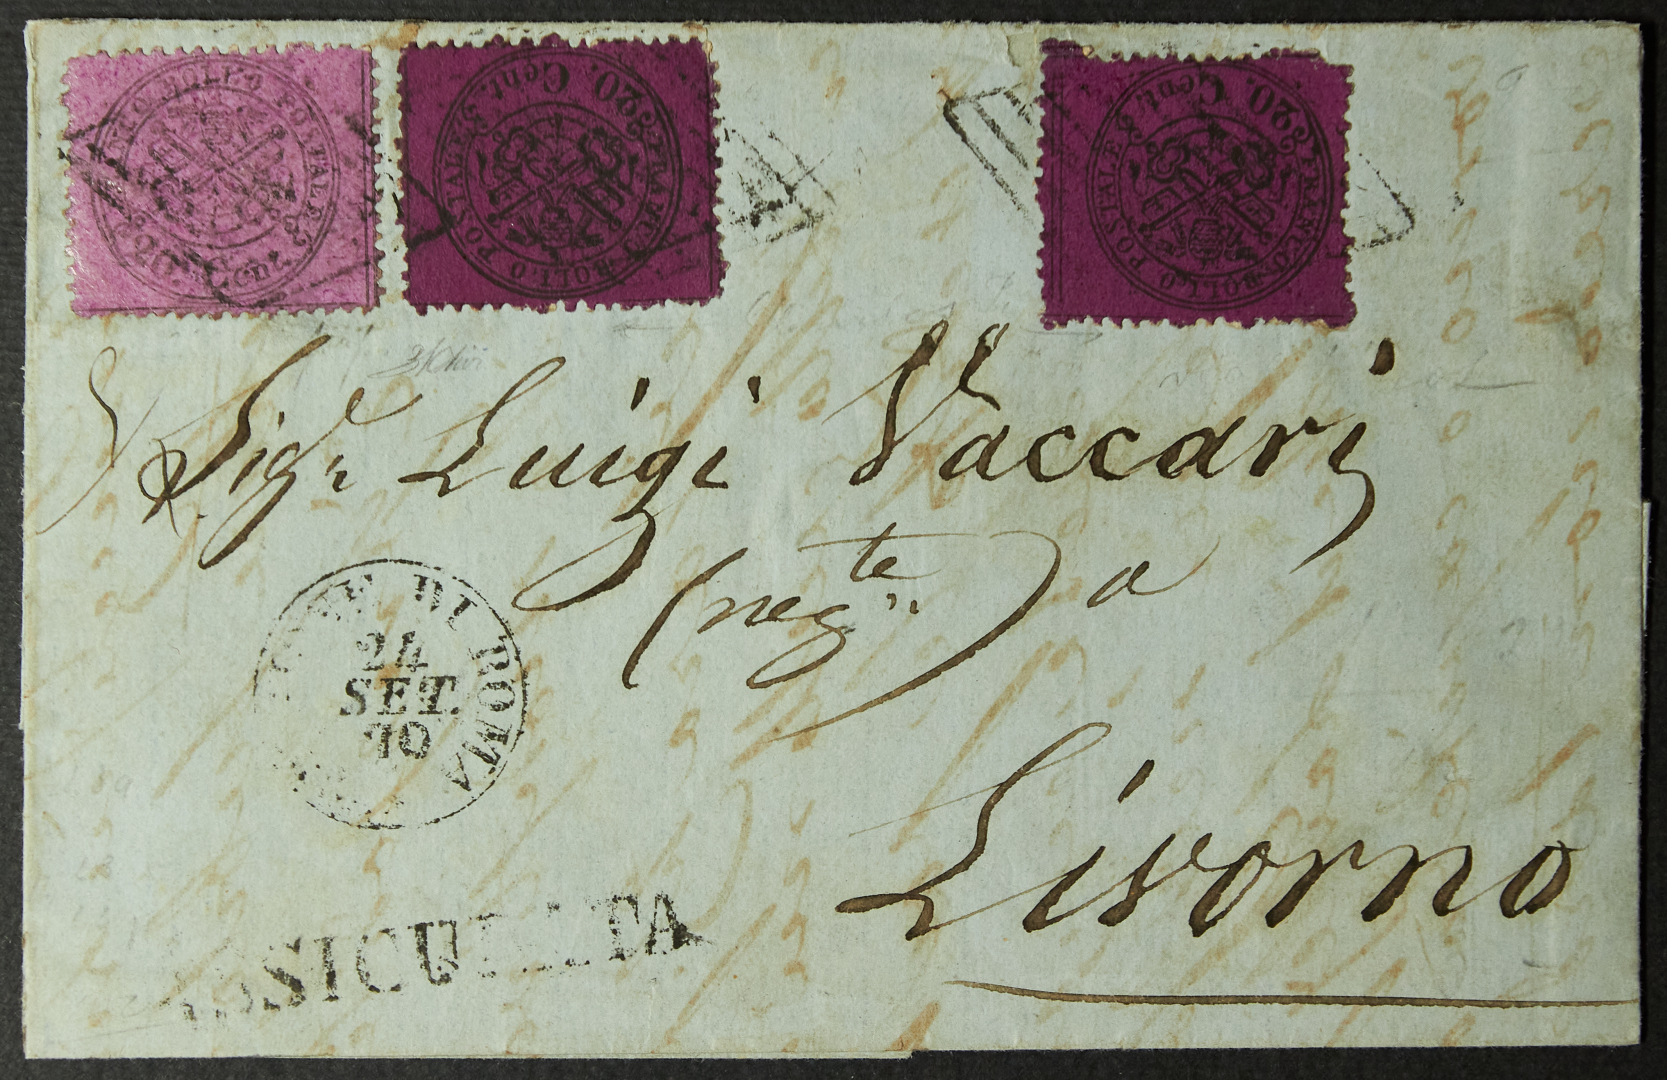 FRANCO BOLLO POSTALE
Cent.
FRANCO BOLLO POSTALE
20. Cent.
FRANCO BOLLO POSTALE
20. Cent.
Sigr. Luigi Vaccari
(negte) a
Livorno
DI ROMA
24
SET.
70
ASSICURATA